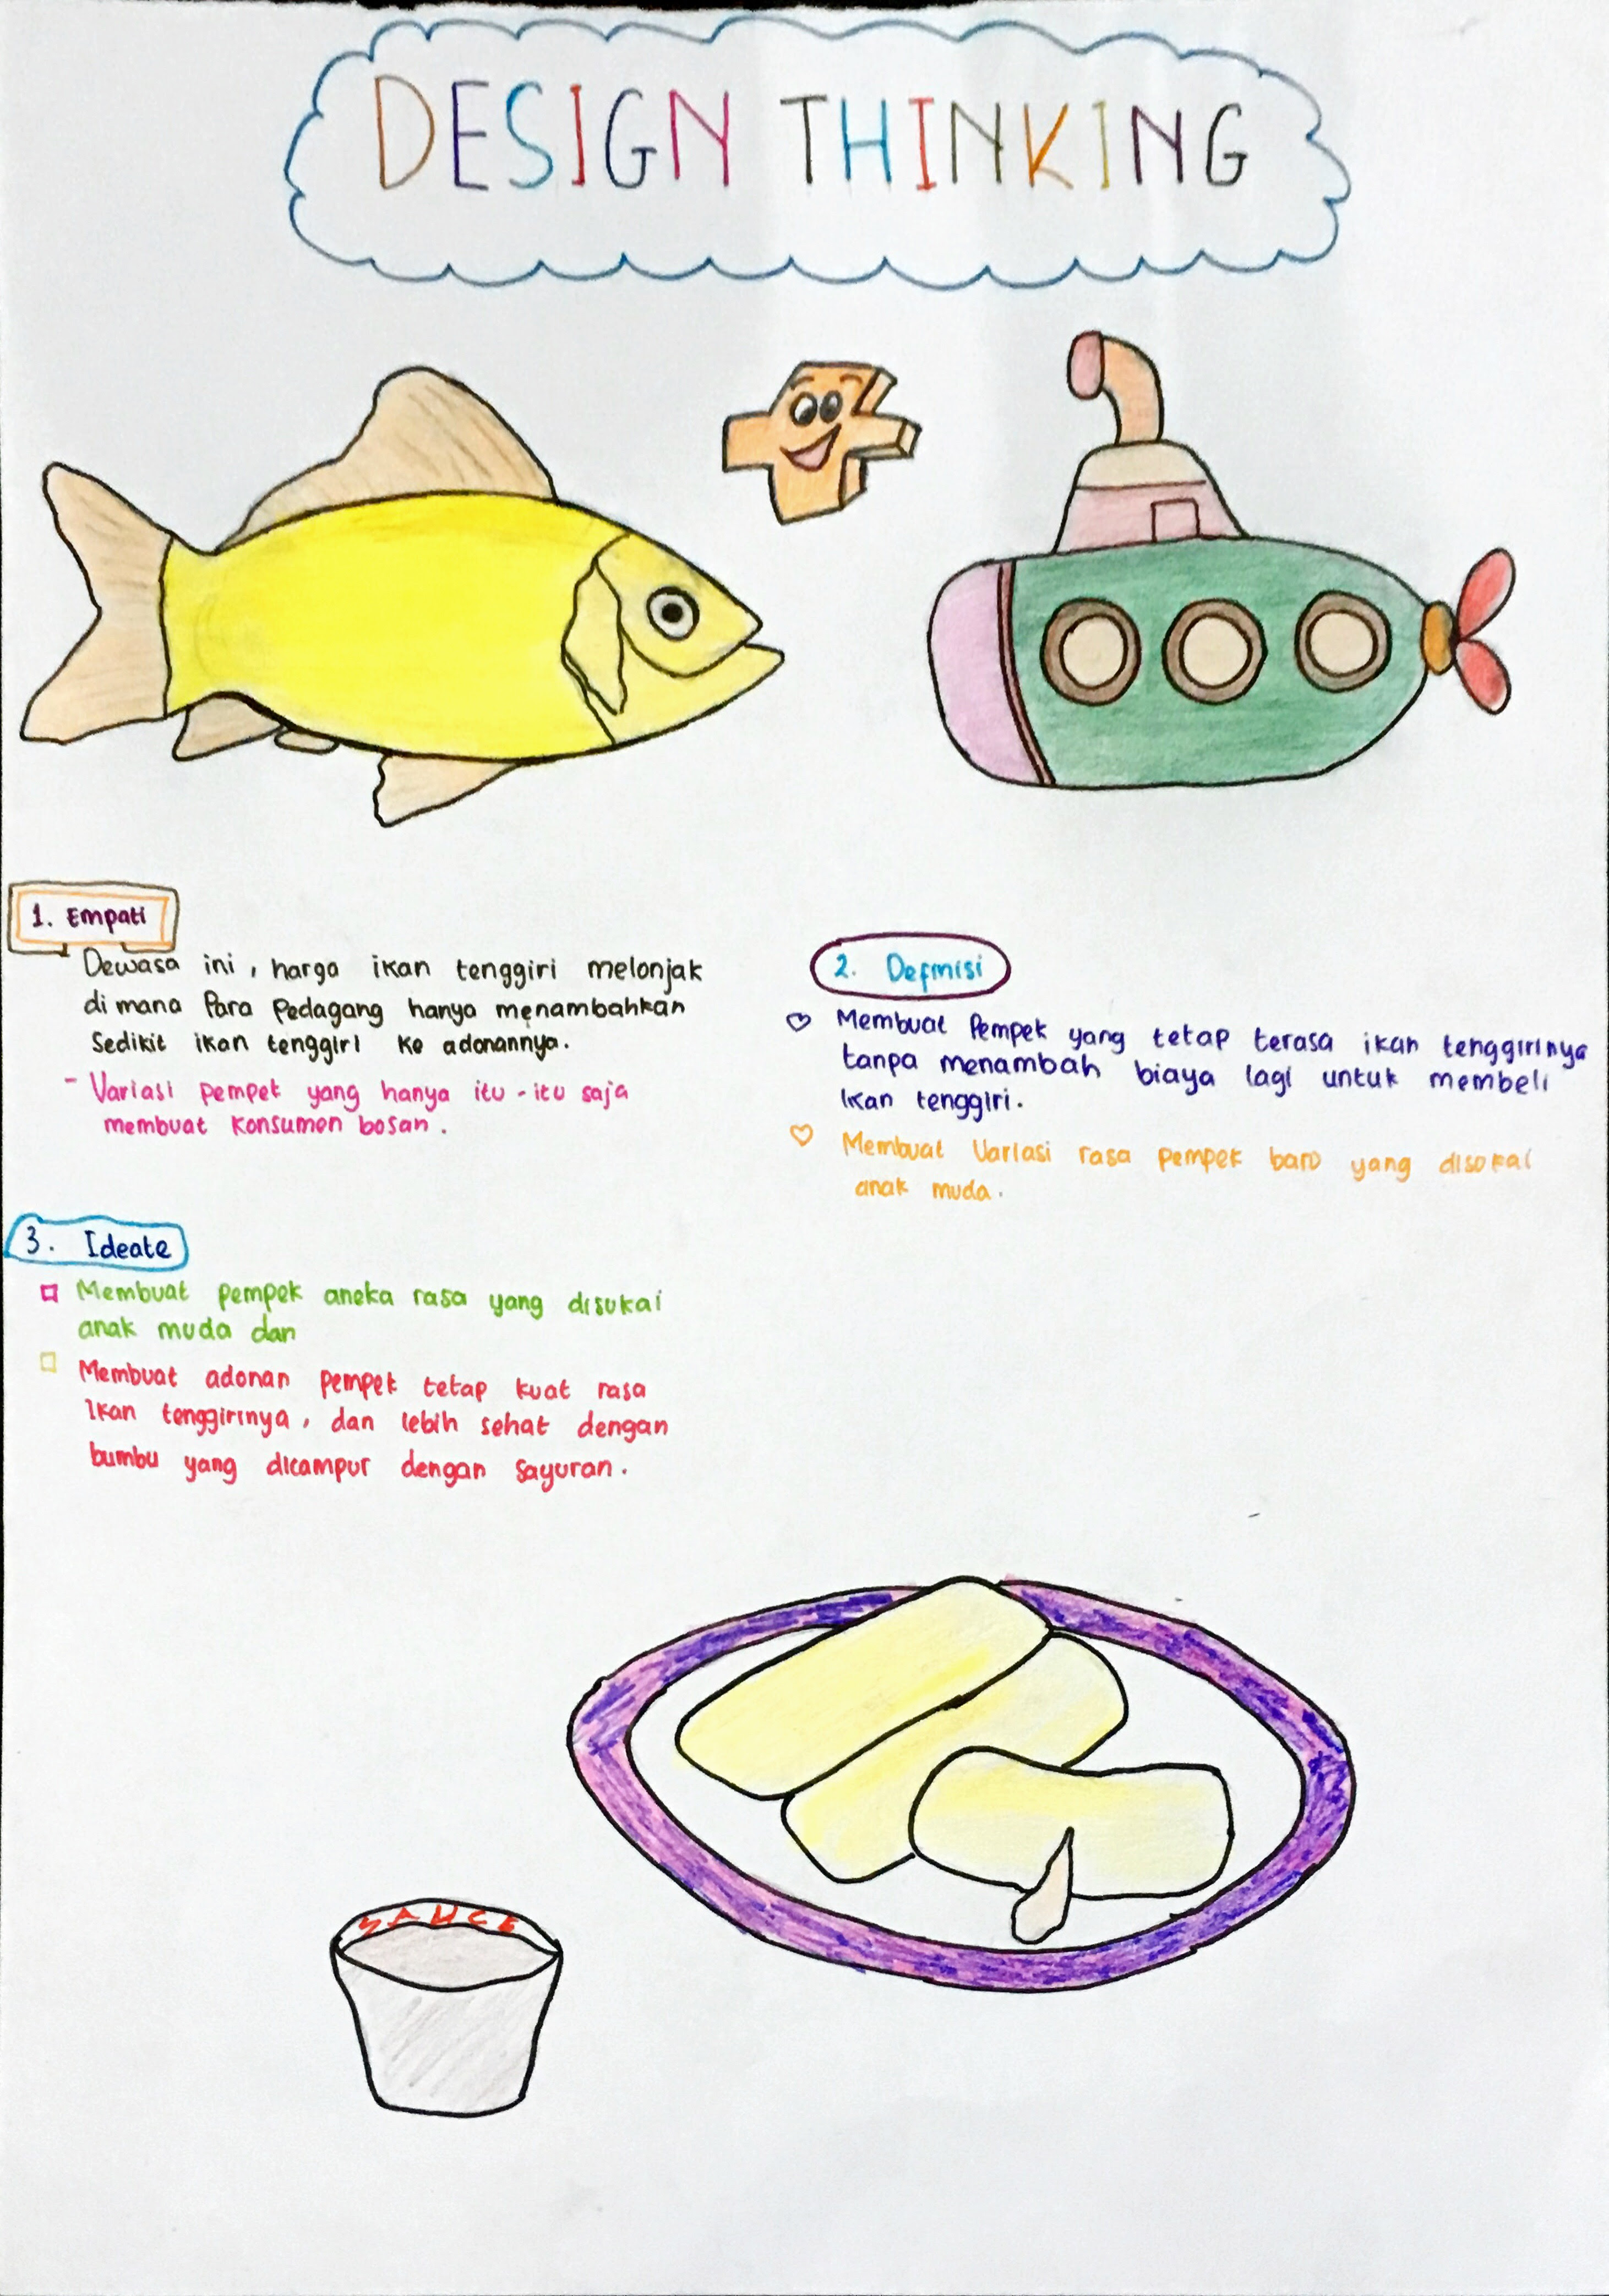 DESIGN THINKING
1. Empati
- Dewasa ini, harga ikan tenggiri melonjak
di mana Para Pedagang hanya menambahkan
Sedikit ikan tenggiri ke adonannya.
- Variasi pempek yang hanya itu-itu saja
membuat konsumen bosan.
2. Definisi
♡ Membuat Pempek yang tetap terasa ikan tenggirinya
tanpa menambah biaya lagi untuk membeli
Ikan tenggiri.
♡ Membuat Variasi rasa pempek baru yang disukai
anak muda.
3. Ideate
□ Membuat pempek aneka rasa yang disukai
anak muda dan
□ Membuat adonan pempek tetap kuat rasa
Ikan tenggirinya, dan lebih sehat dengan
bumbu yang dicampur dengan sayuran.
SAUCE